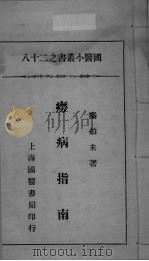 國醫小叢書之二十八
秦伯未著
癆病指南
上海國醫書局印行